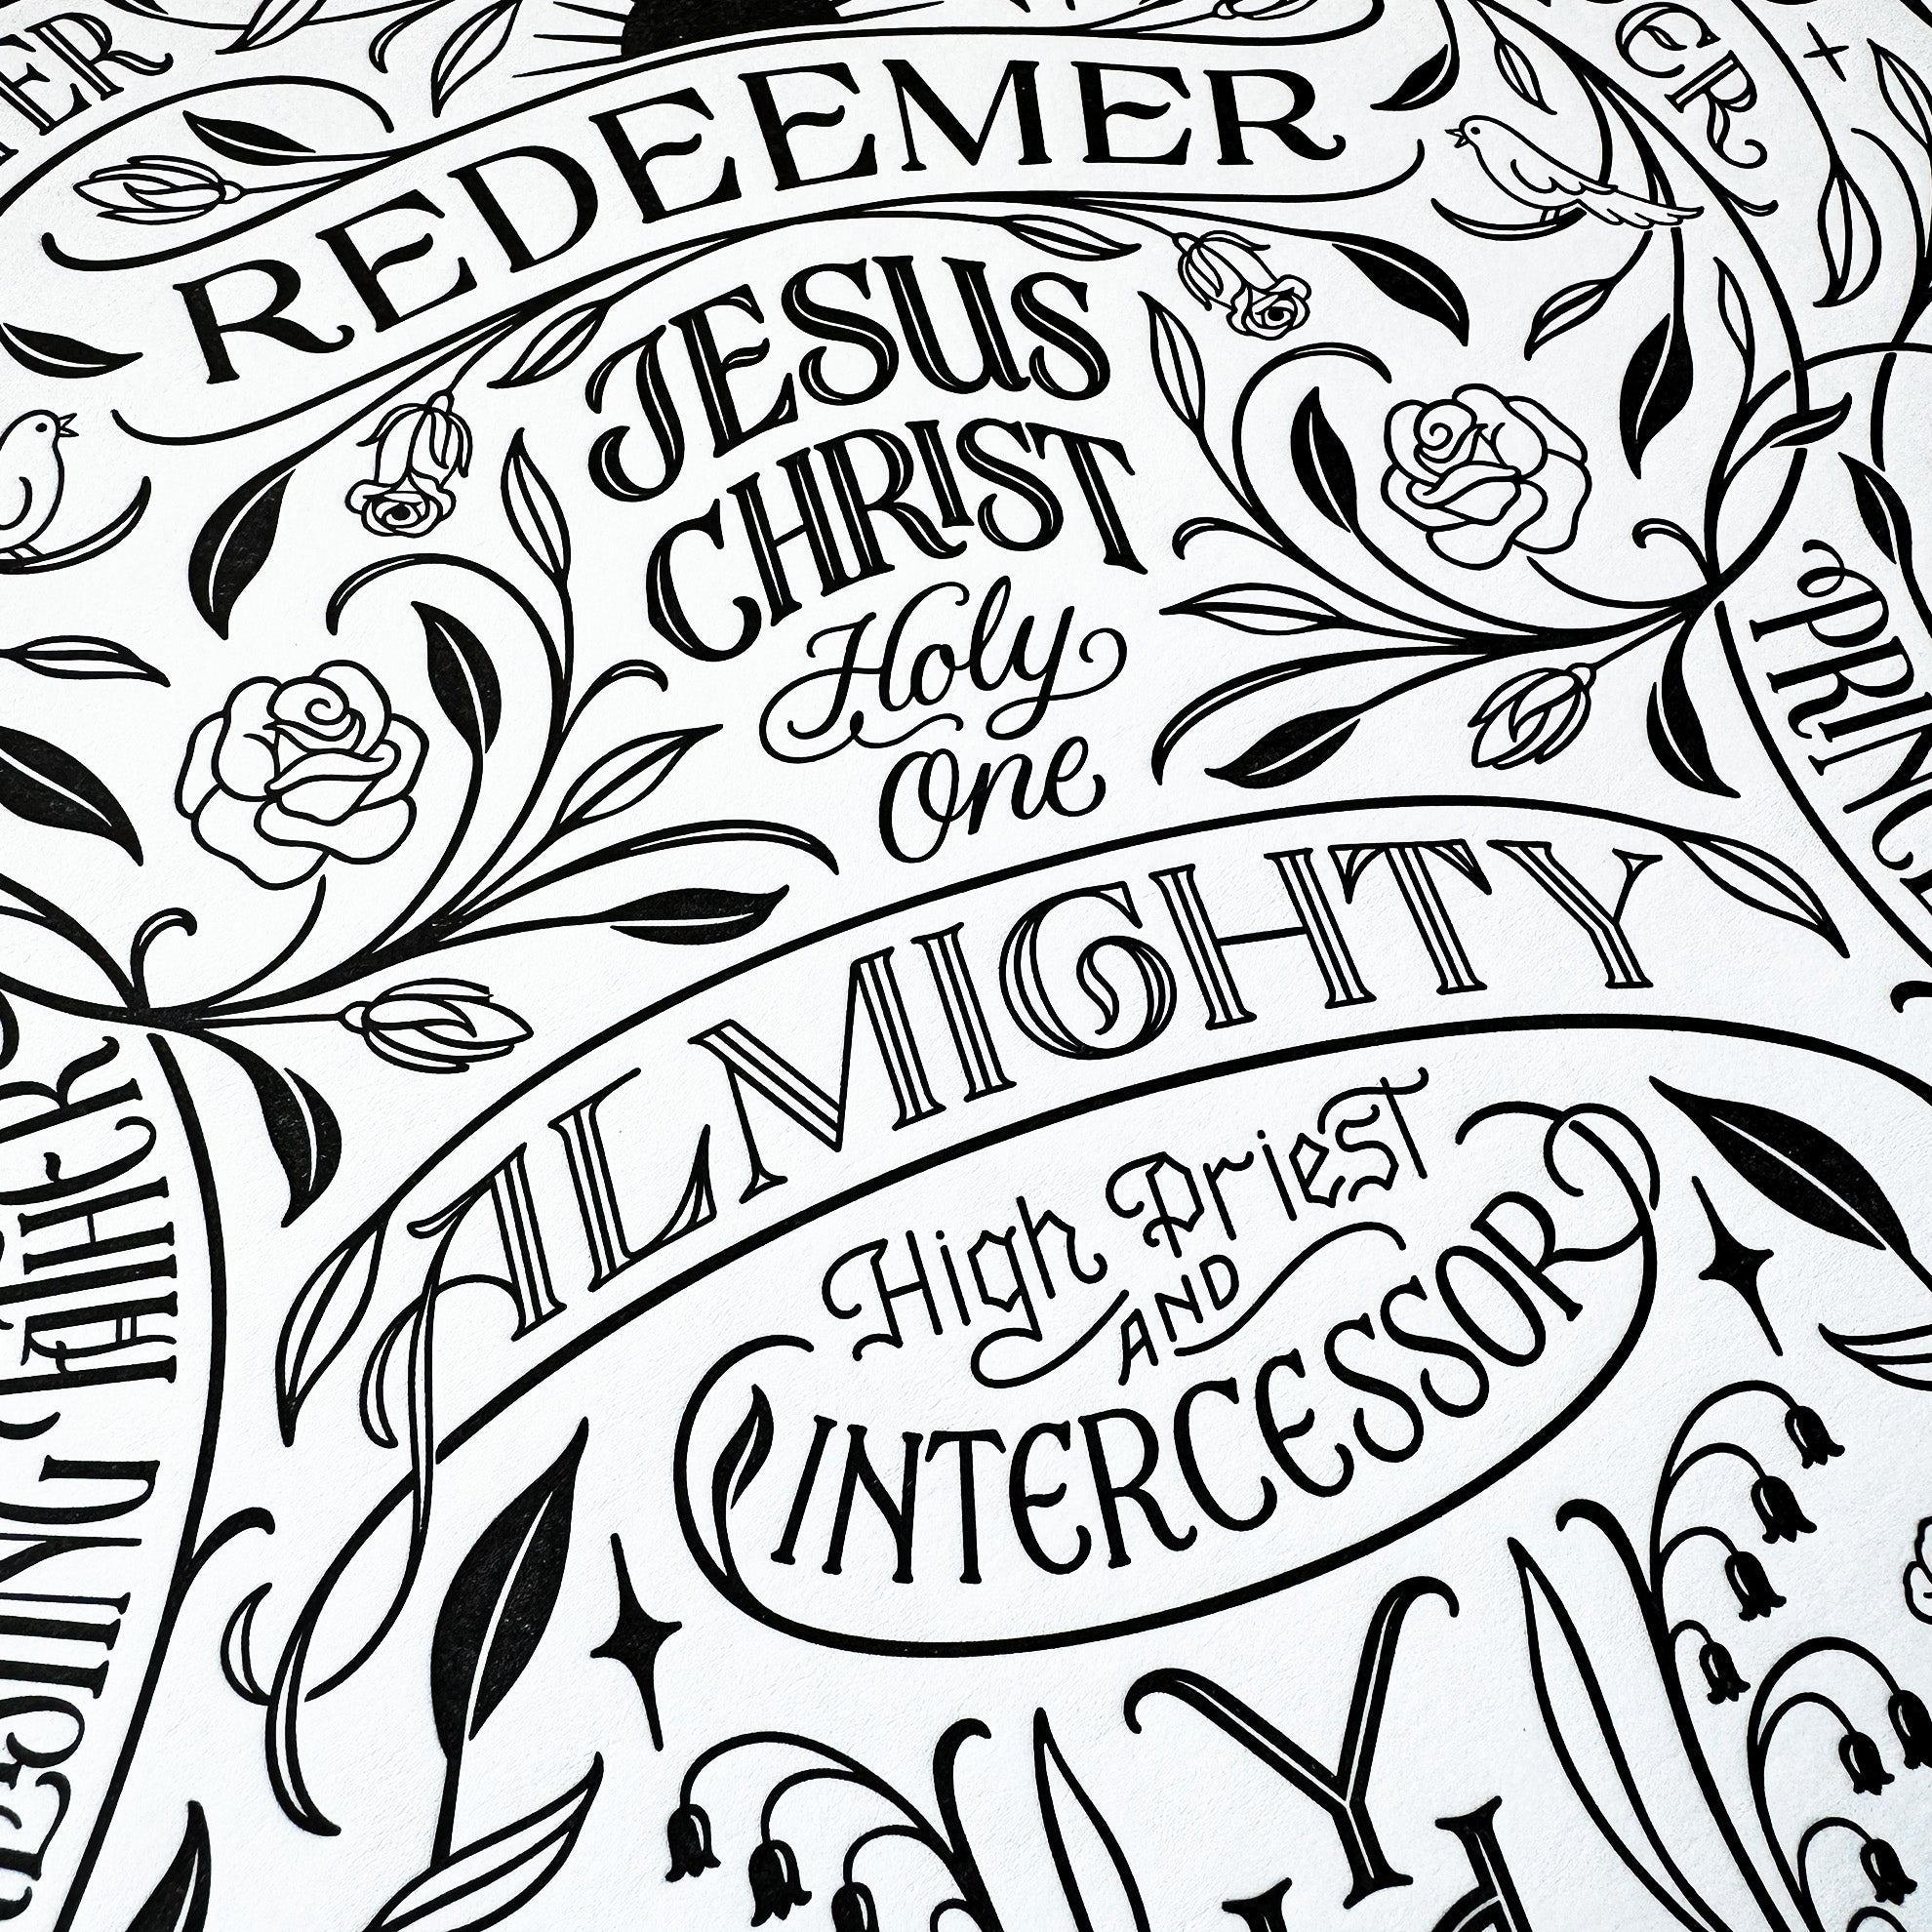 REDEEMER
JESUS
CHRIST
Holy
One
ALMIGHTY
High Priest
AND
INTERCESSOR
FATHER